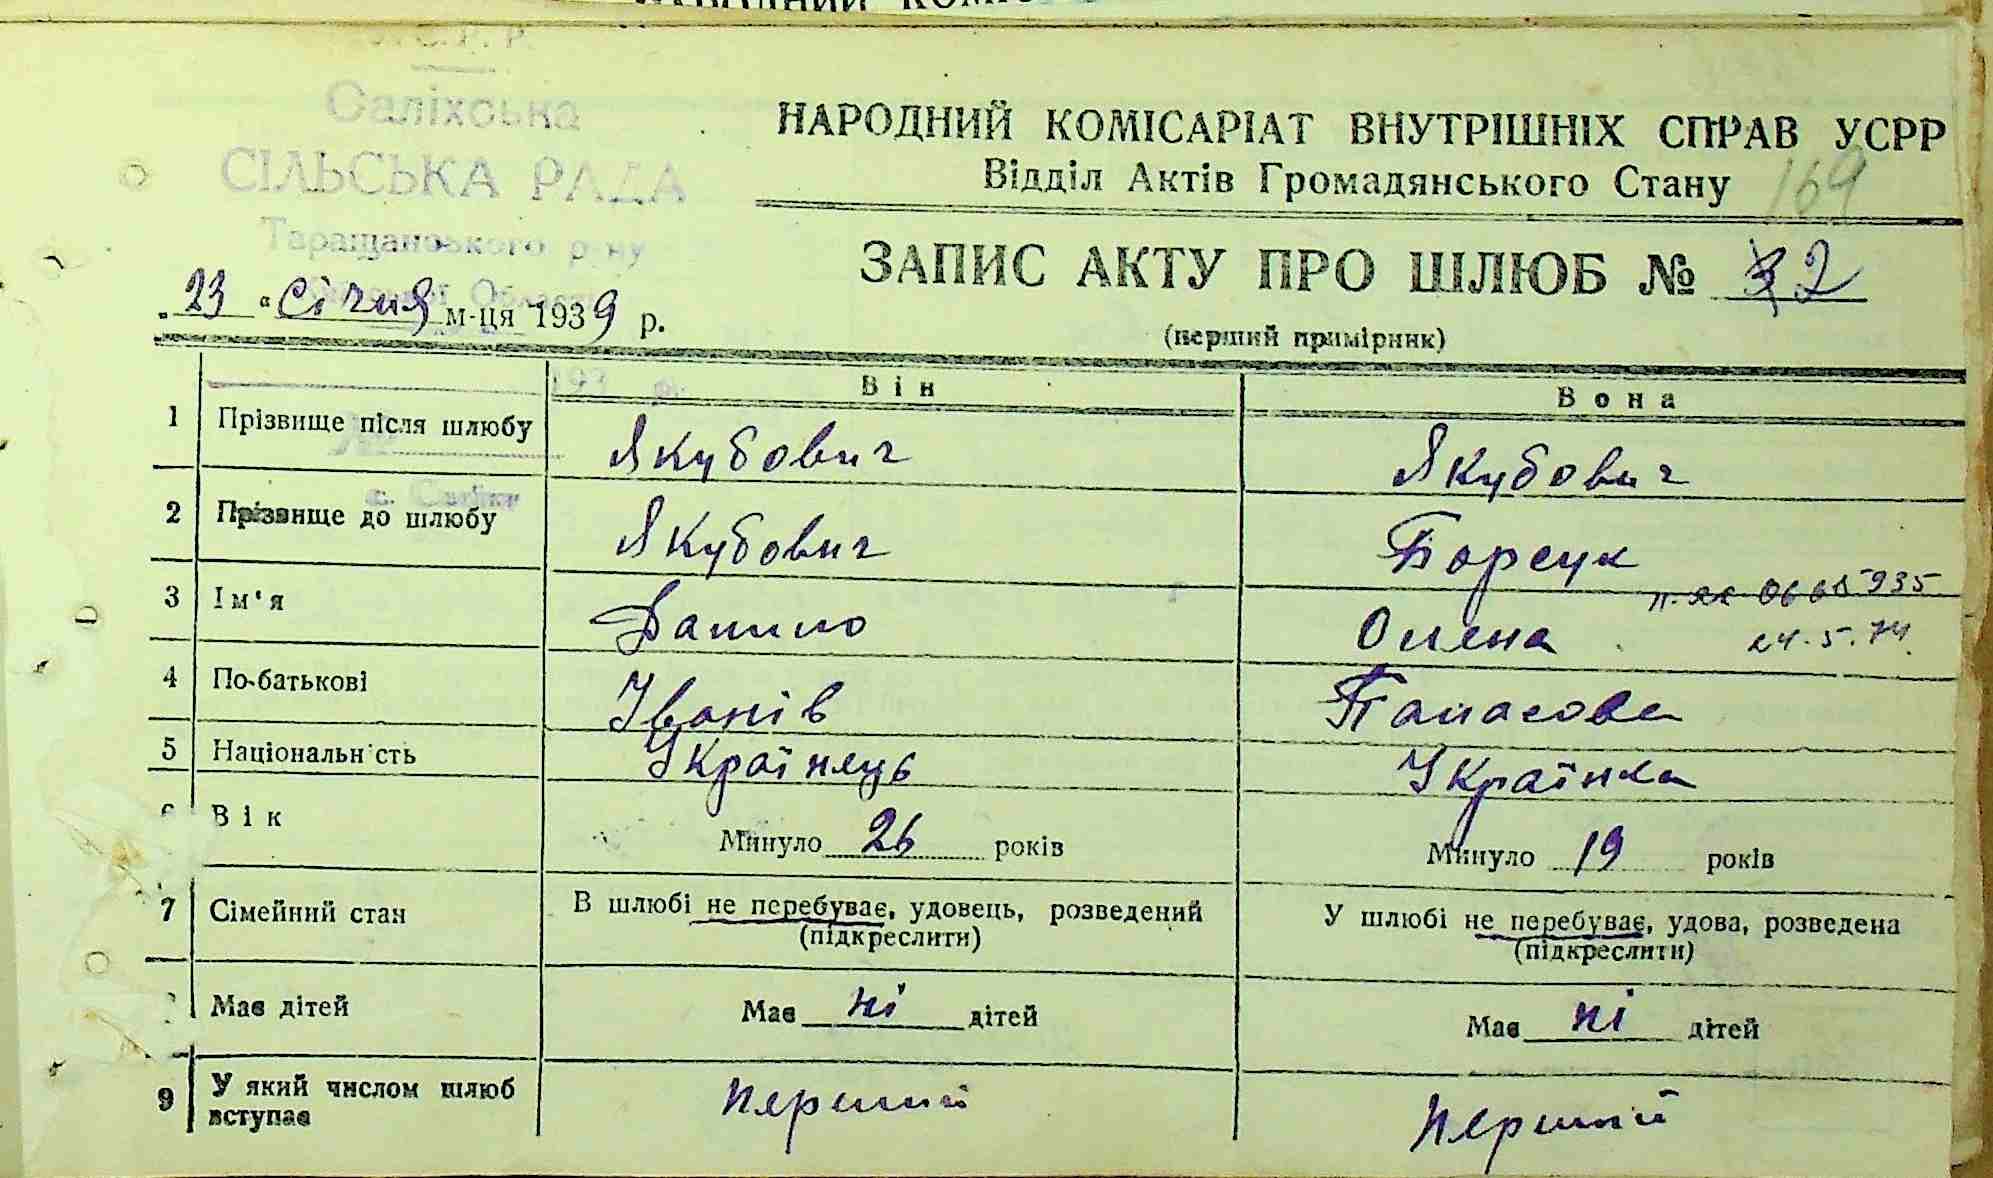 У.С.Р.Р.
Саліхська
СІЛЬСЬКА РАДА
Таращанського р-ну
Області
НАРОДНИЙ КОМІСАРІАТ ВНУТРІШНІХ СПРАВ УСРР
Відділ Актів Громадянського Стану
169
ЗАПИС АКТУ ПРО ШЛЮБ № 2
(перший примірник)
„23 “ Січня м-ця 1939 р.
Він Вона
1 Прізвище після шлюбу Якубович Якубович
2 Прізвище до шлюбу Якубович Борсук
3 Ім'я Данило Олена
24.5.74.
4 По-батькові Іванів Панасова
5 Національність Українець Українка
6 Вік Минуло 26 років Минуло 19 років
7 Сімейний стан В шлюбі не перебуває, удовець, розведений (підкреслити) У шлюбі не перебуває, удова, розведена (підкреслити)
Має дітей Має ні дітей Має ні дітей
9 У який числом шлюб вступає перший перший